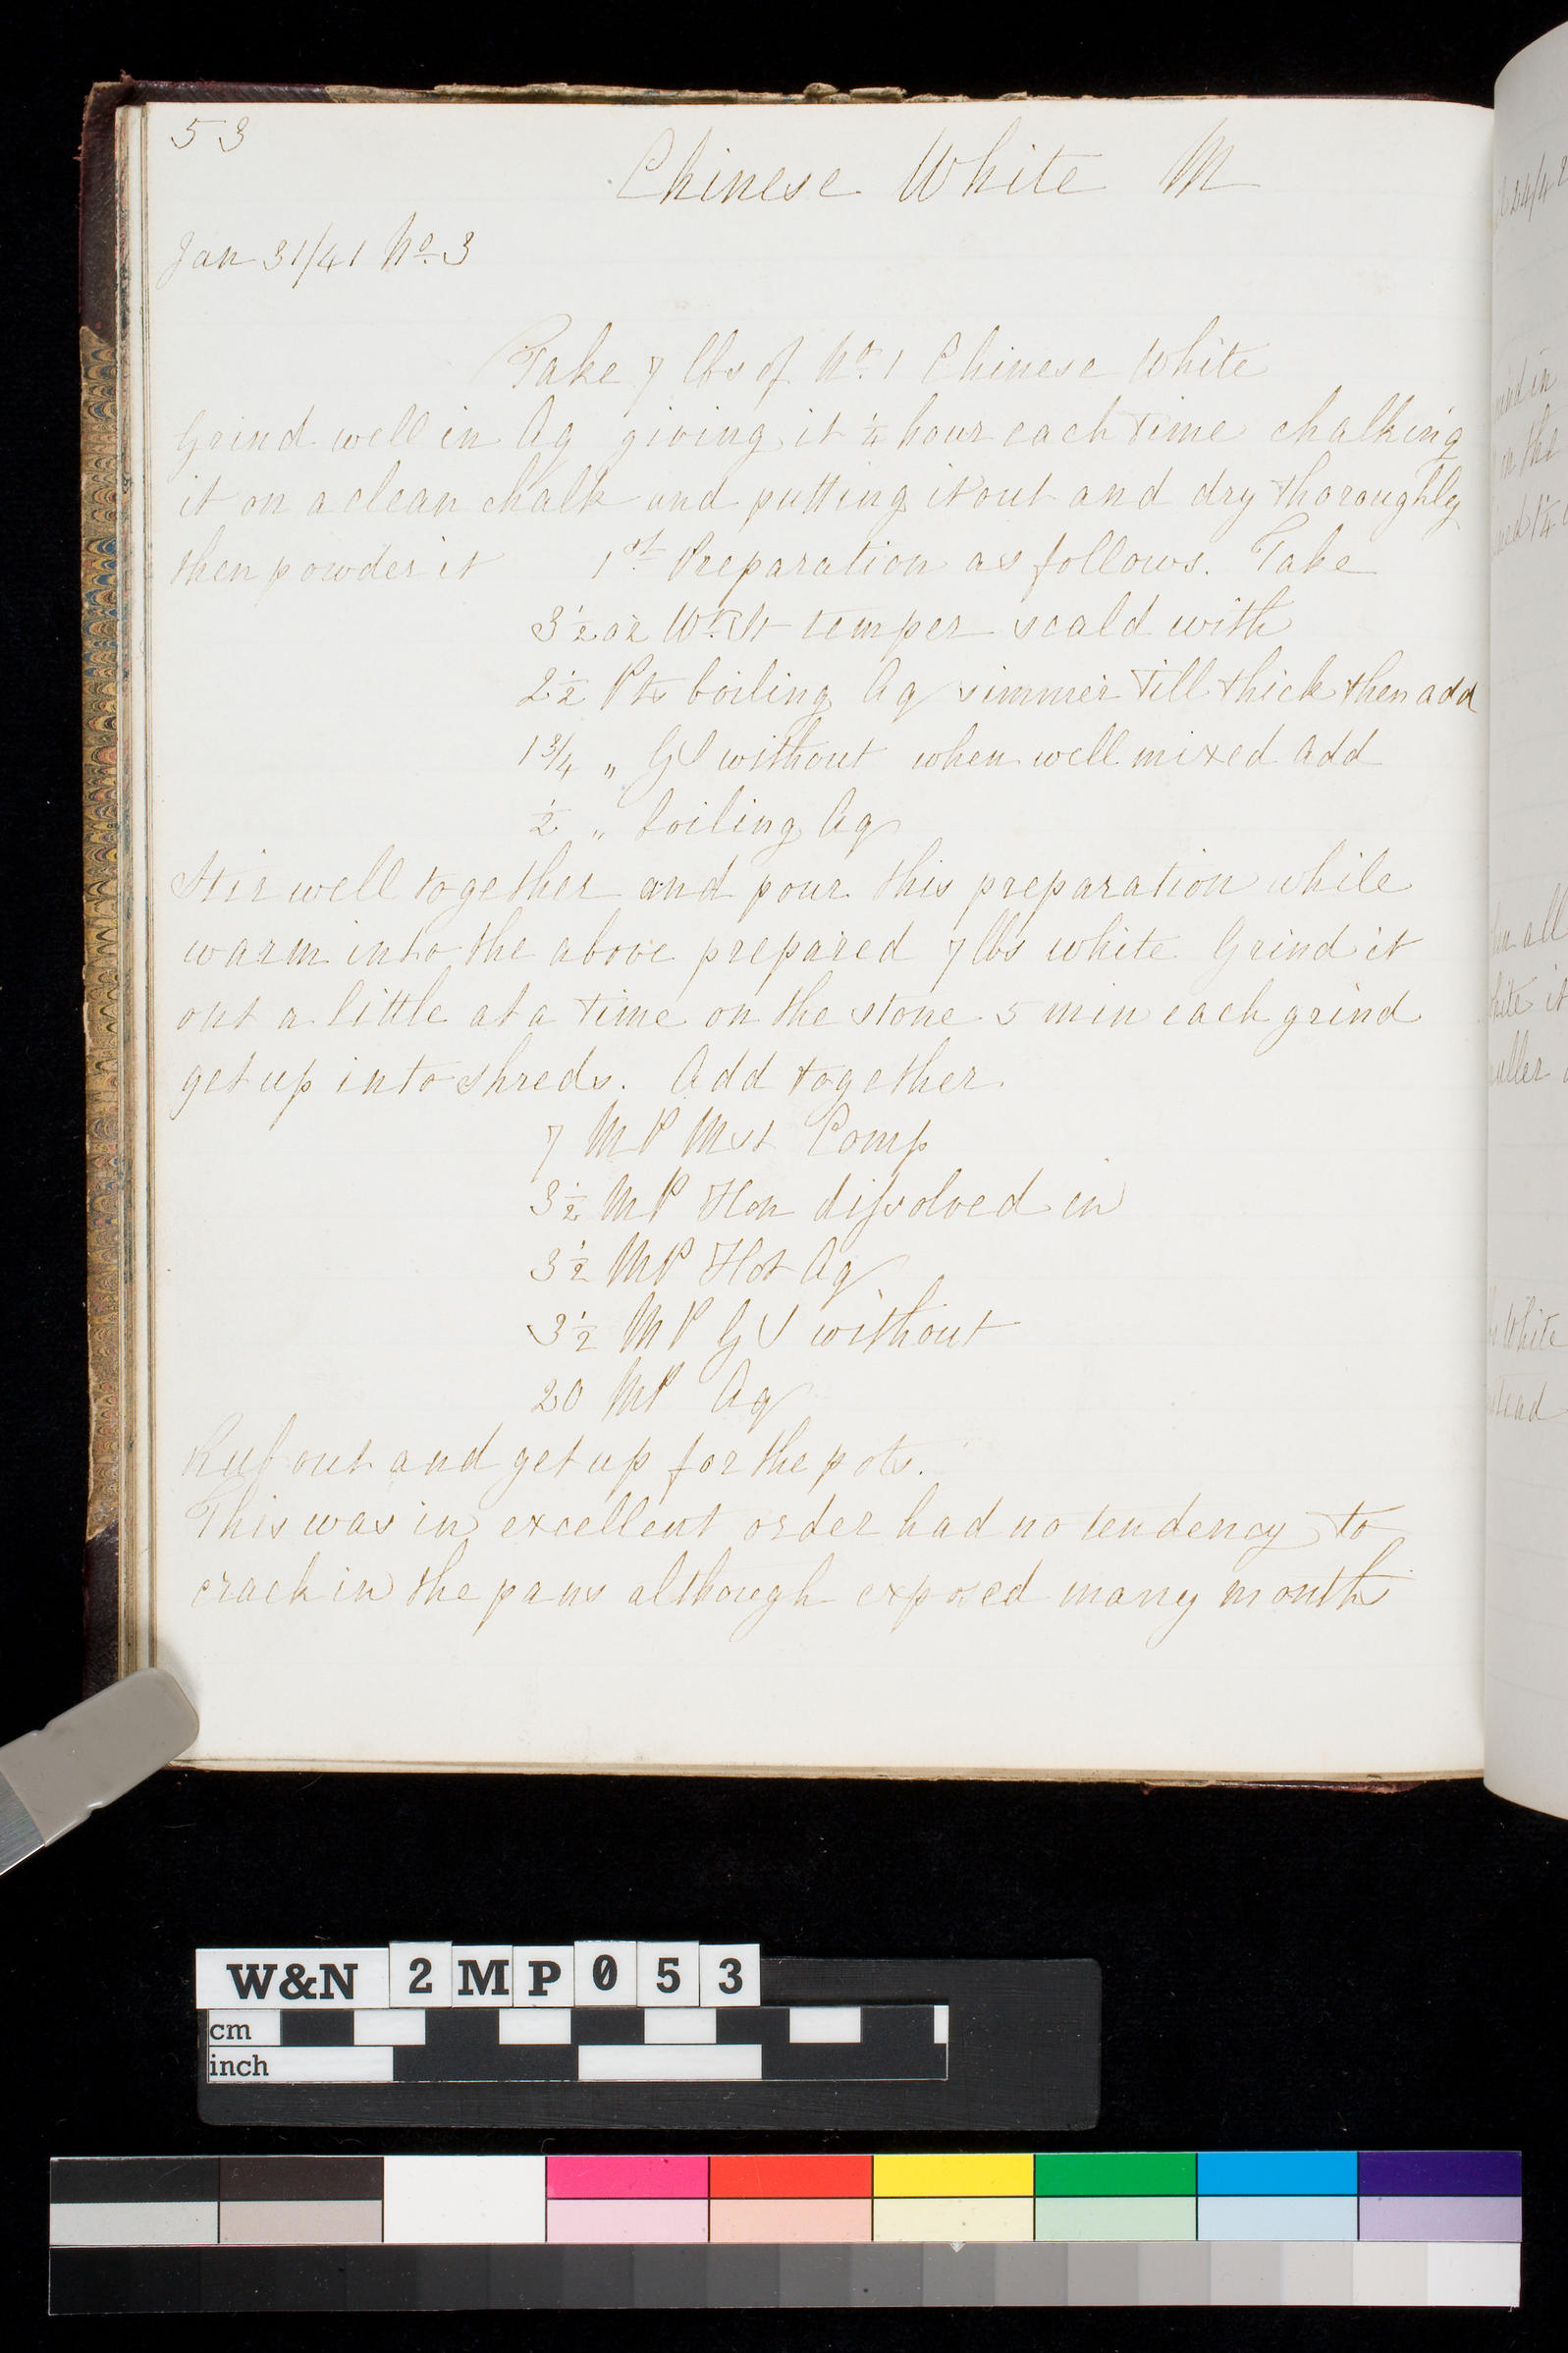 53
Chinese White M
Jan 31/41 No. 3
Take 7 lbs of No. 1 Chinese White
Grind well in Aq giving it ¼ hour each time chalking
it on a clean chalk and putting it out and dry thoroughly
then powder it 1st Preparation as follows. Take
3½ oz Wt St temper scald with
2½ Pts boiling Aq simmer till thick then add
1 3/4 " GS without when well mixed add
½ " boiling Aq
Stir well together and pour this preparation while
warm into the above prepared 7 lbs white Grind it
out a little at a time on the stone 5 min each grind
get up into shreds. Add together.
7 MP Mst Comp
3½ MP Hon dissolved in
3½ MP Hot Aq
3½ MP GS without
20 MP Aq
out and get up for the pots.
This was in excellent order had no tendency to
crack in the pans although exposed many months
W&N 2MP053
cm
inch
24/42
in
on the
all
White